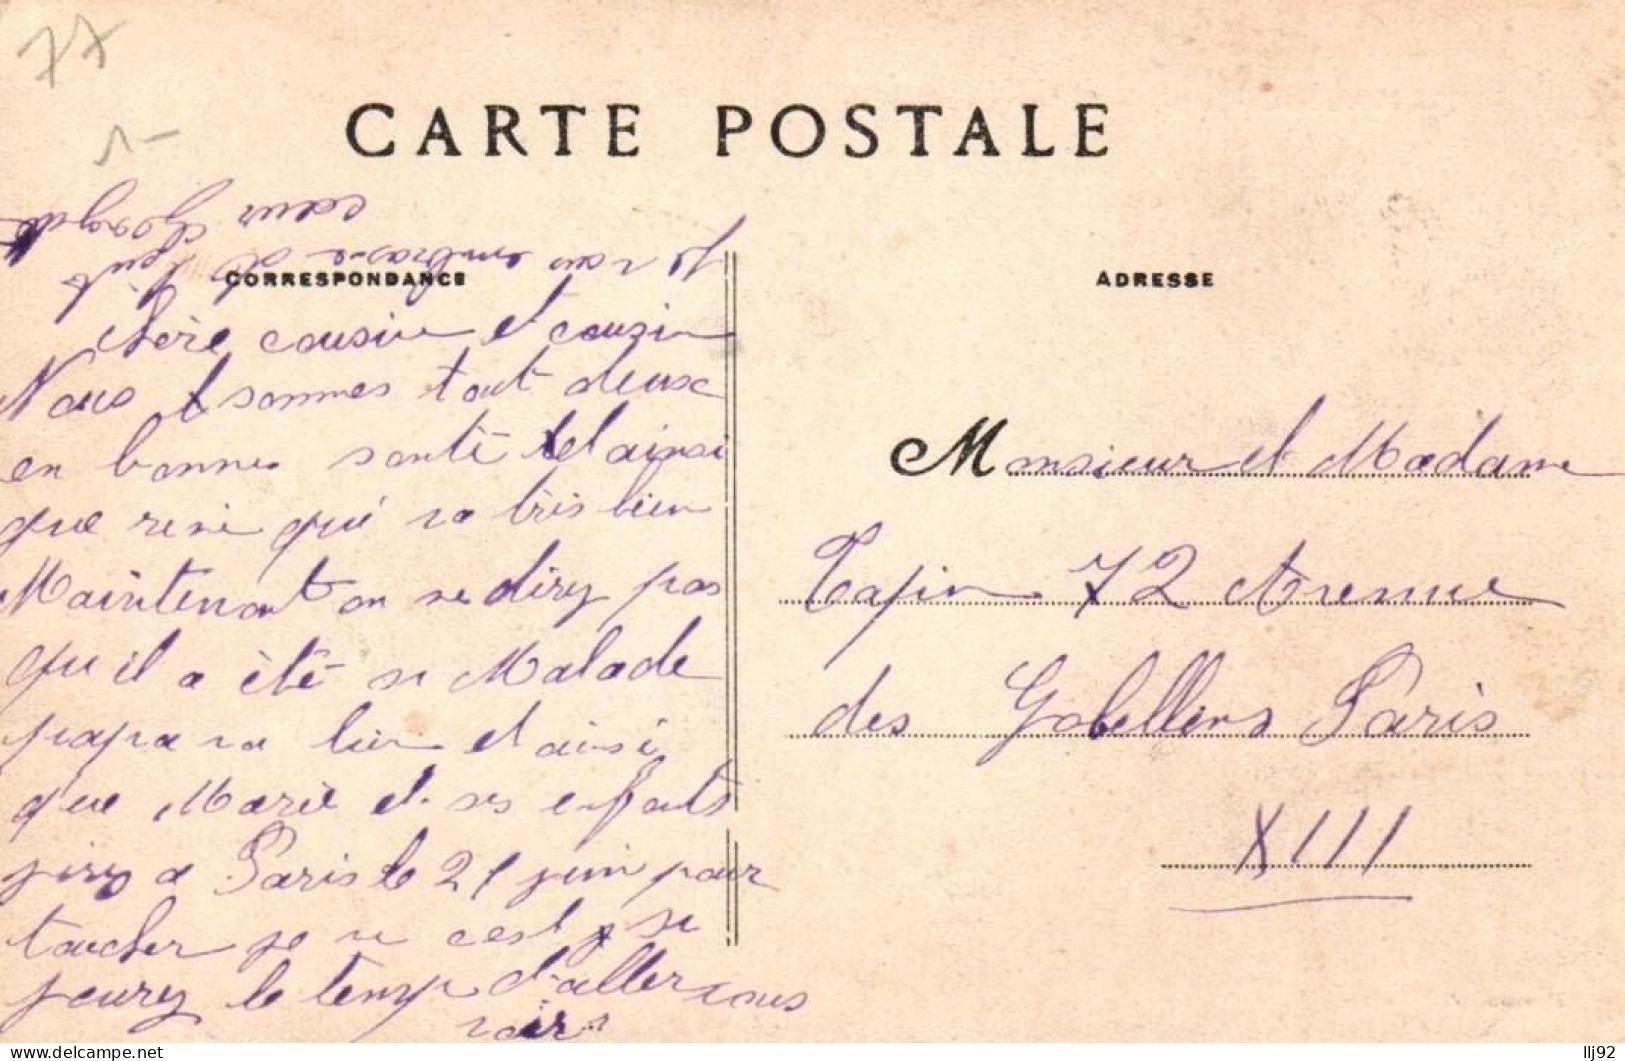 77
1-
CARTE POSTALE
CORRESPONDANCE
ADRESSE
chère cousine et cousin
Nous sommes tout deux
en bonnes santé et ainsi
que rené qui va très bien
Maintenant on ne direz pas
qu il a été si Malade
papa va bien et ainsi
que Marie et ses enfants
jirez a Paris le 21 juin pour
toucher je ne c est si
jaurez le temp d-aller vous
voir
Je vous embrasse de tout
cœur
Monsieur et Madame
Tapin 72 Avenue
des Gobellins Paris
XIII
llj92